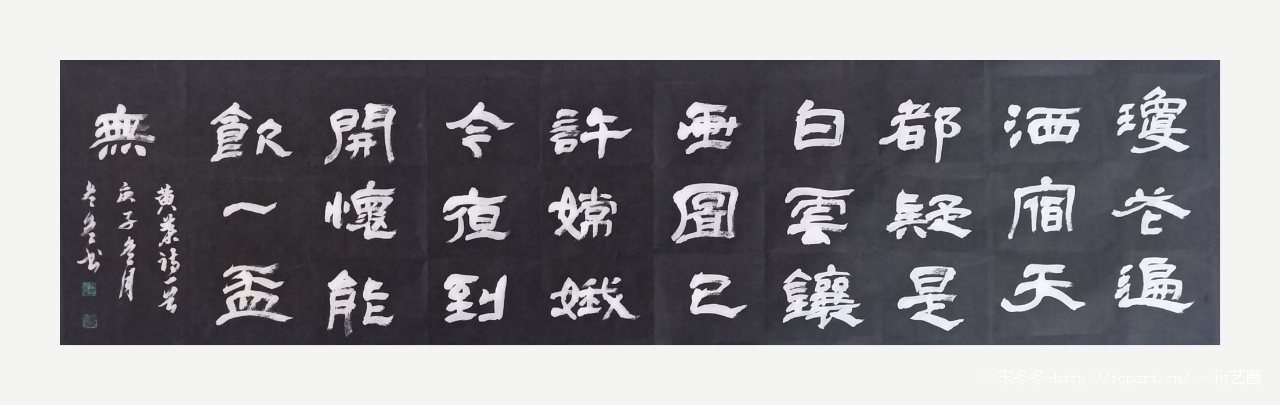 瓊花遍
洒宿天
都疑是
白雲鑲
畫圖已
許嫦娥
今夜到
開懷能
飲一盃
無
黄葉詩一首
庚子冬月
冬冬书
© 宋冬冬-http://topart.cn/ - 衍艺圈